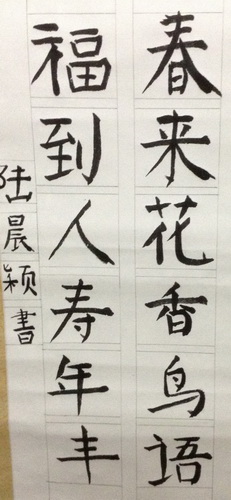 春来花香鸟语
福到人寿年丰
陆晨颖書